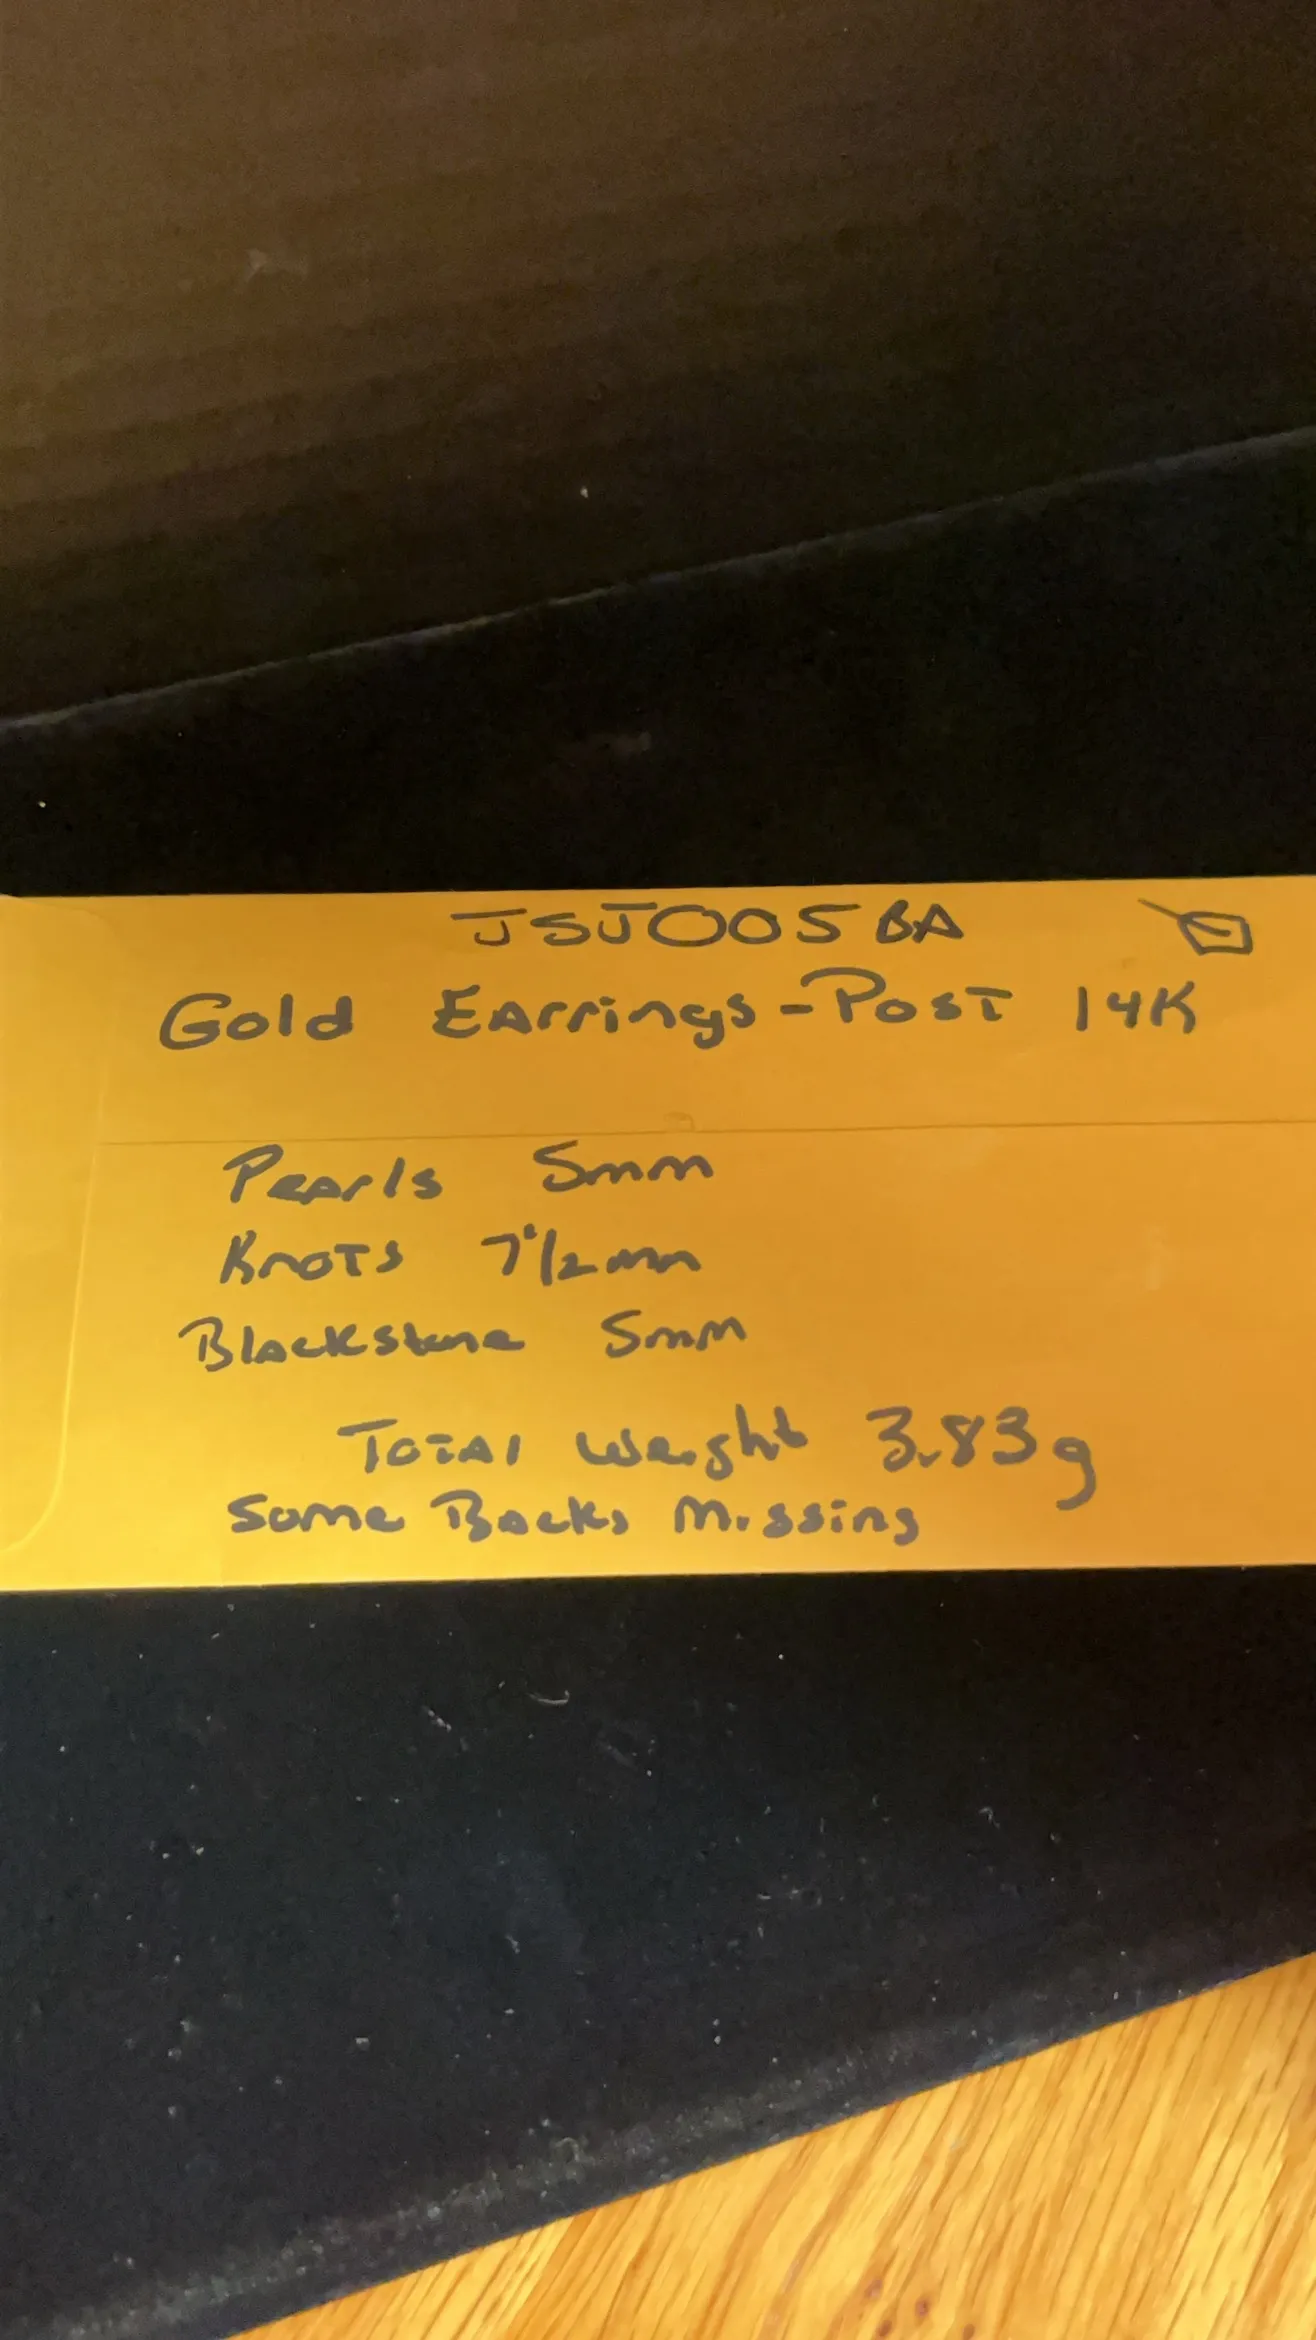 JSJ005BA
Gold Earrings-Post 14K
Pearls 5mm
Knots 7 1/2mm
Blackstone 5mm
Total Weight 3.83g
Some Backs Missing